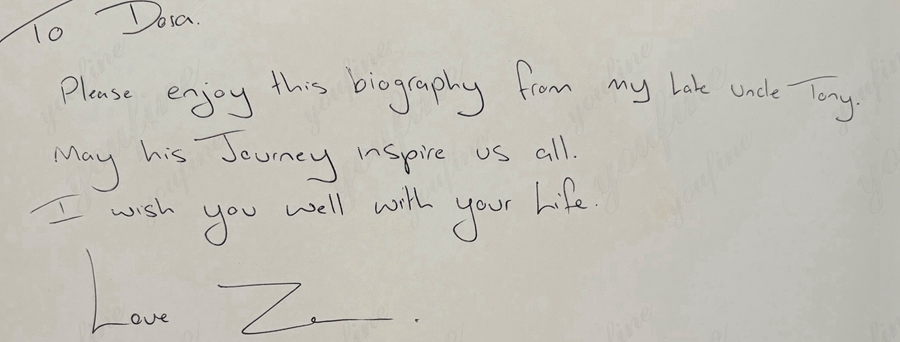 To Dosa.
Please enjoy this biography from my Late uncle Tony.
May his Journey inspire us all.
I wish you well with your Life.
Love